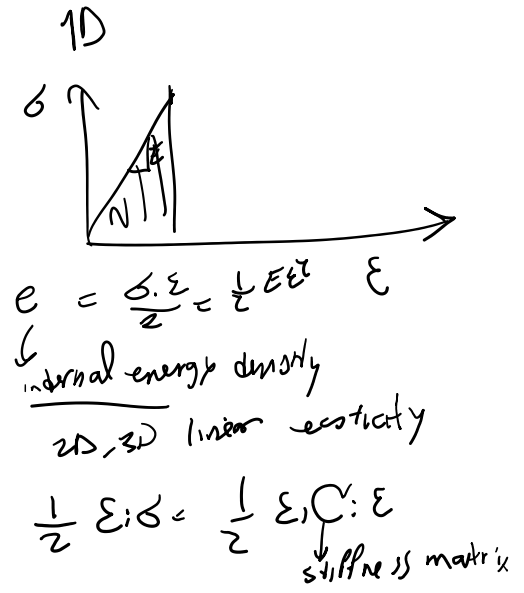 1D
σ
E
ε
e = σ.ε/2 = 1/2 Eε²
internal energy density
2D, 3D linear easticity
1/2 ε:σ = 1/2 ε:C:ε
stiffness matrix